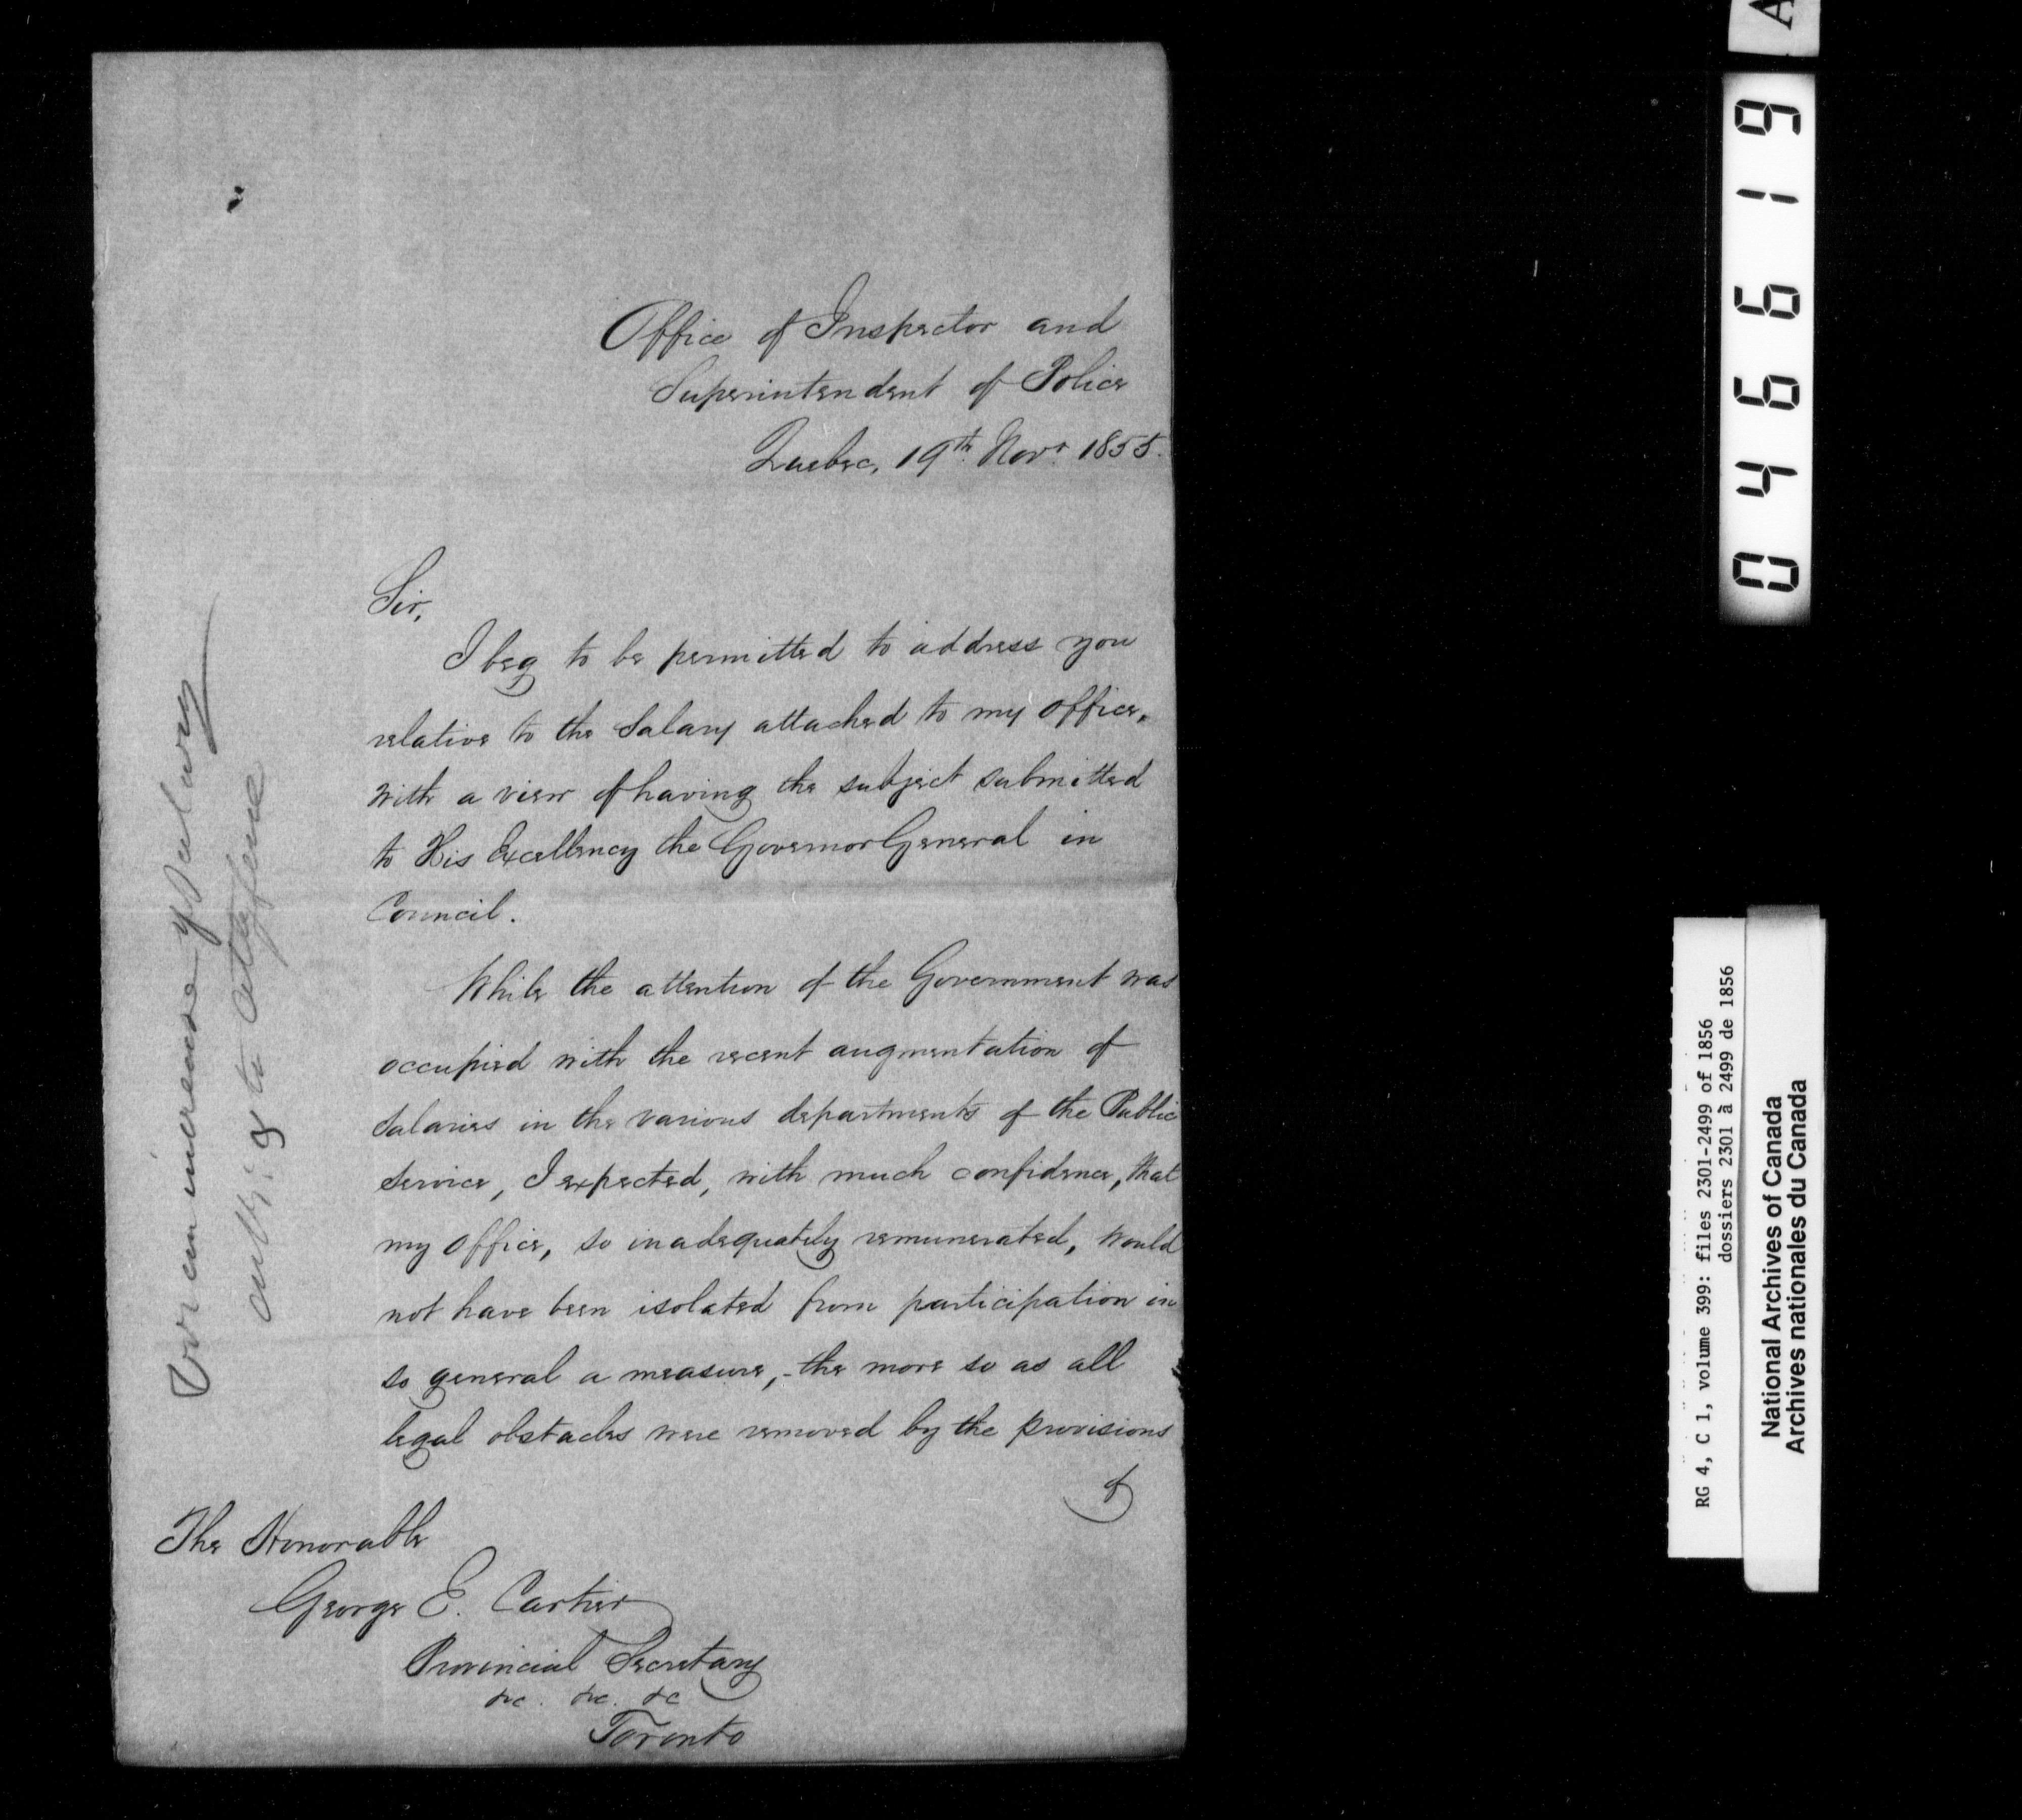 Office of Inspector and
Superintendent of Police
Quebec, 19th. Novr. 1855.
Sir,
I beg to be permitted to address you
relative to the Salary attached to my Office,
with a view of having the subject submitted
to His Excellency the Governor General in
Council.
While the attention of the Government was
occupied with the recent augmentation of
Salaries in the various departments of the Public
Service, I expected, with much confidence, that
my Office, so inadequately remunerated, would
not have been isolated from participation in
so general a measure, - the more so as all
legal obstacles were removed by the provisions
of
The Honorable
George E. Cartier
Provincial Secretary
&c. &c. &c
Toronto
increase of Salary
to
046619
RG 4, C 1, volume 399: files 2301-2499 of 1856
dossiers 2301 à 2499 de 1856
National Archives of Canada
Archives nationales du Canada
A